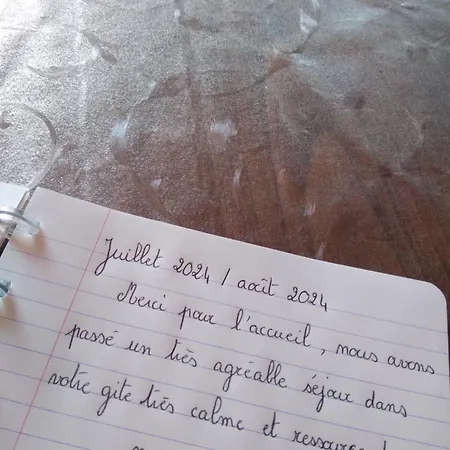 Juillet 2024 / août 2024
Merci pour l'accueil, nous avons
passé un très agréable séjour dans
votre gite très calme et